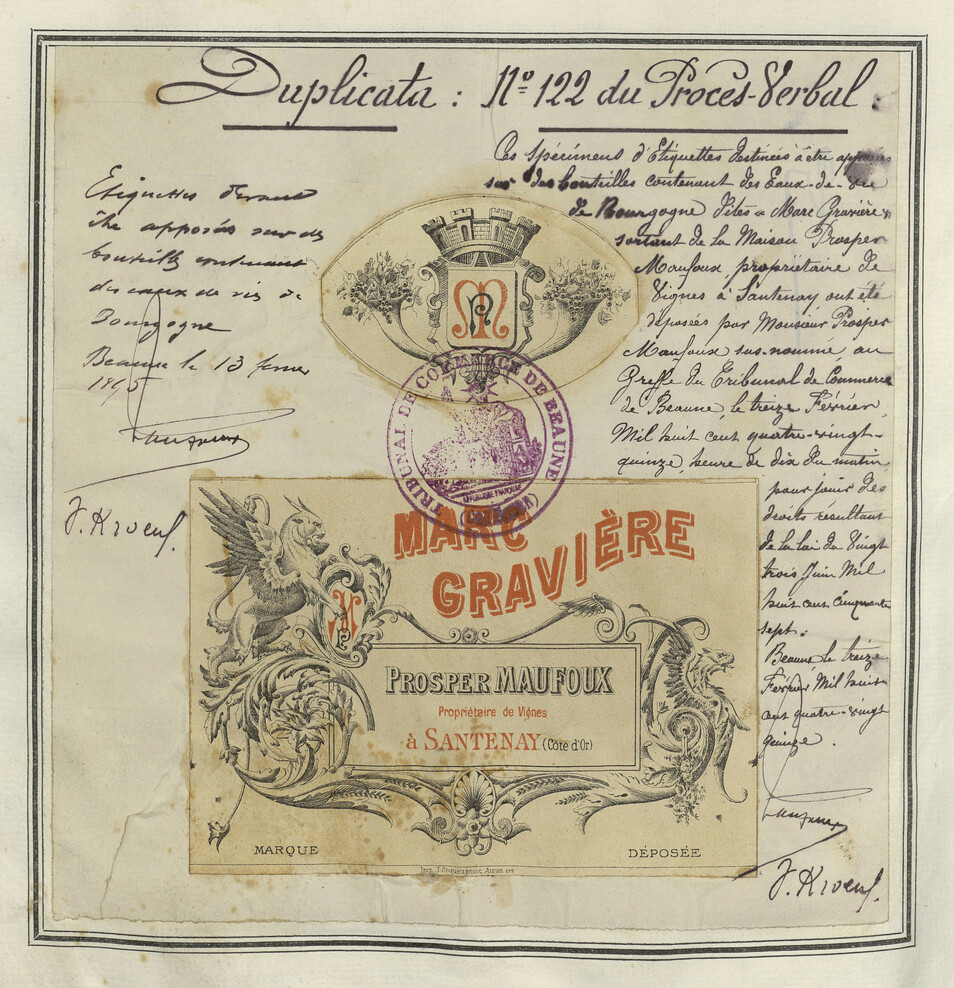 Duplicata : No 122 du Procès-Verbal :
Ces spécimens d'Etiquettes destinées à être apposées
sur des bouteilles contenant des Eaux-de-vie
de Bourgogne dites « Marc Gravière »
sortant de la Maison Prosper
Maufoux, propriétaire de
Vignes à Santenay ont été
déposées par Monsieur Prosper
Maufoux sus-nommé, au
Greffe du Tribunal de Commerce
de Beaune, le treize Février
Mil huit cent quatre-vingt-
quinze, heure de dix du matin
pour jouir des
droits résultant
de la loi du Vingt
trois Juin Mil
huit cent cinquante
sept.
Beaune le treize
Février Mil huit
cent quatre-vingt
quinze.
J. Kroeul.
Etiquettes devant
être apposées sur des
bouteilles contenant
des eaux de vie de
Bourgogne
Beaune le 13 fevrier
1895
J. Kroeul.
PM
TRIBUNAL DE COMMERCE DE BEAUNE
RÉPUBLIQUE FRANÇAISE
MARC
GRAVIÈRE
PM
PROSPER MAUFOUX
Propriétaire de Vignes
à SANTENAY (Côte d'Or)
MARQUE
DÉPOSÉE